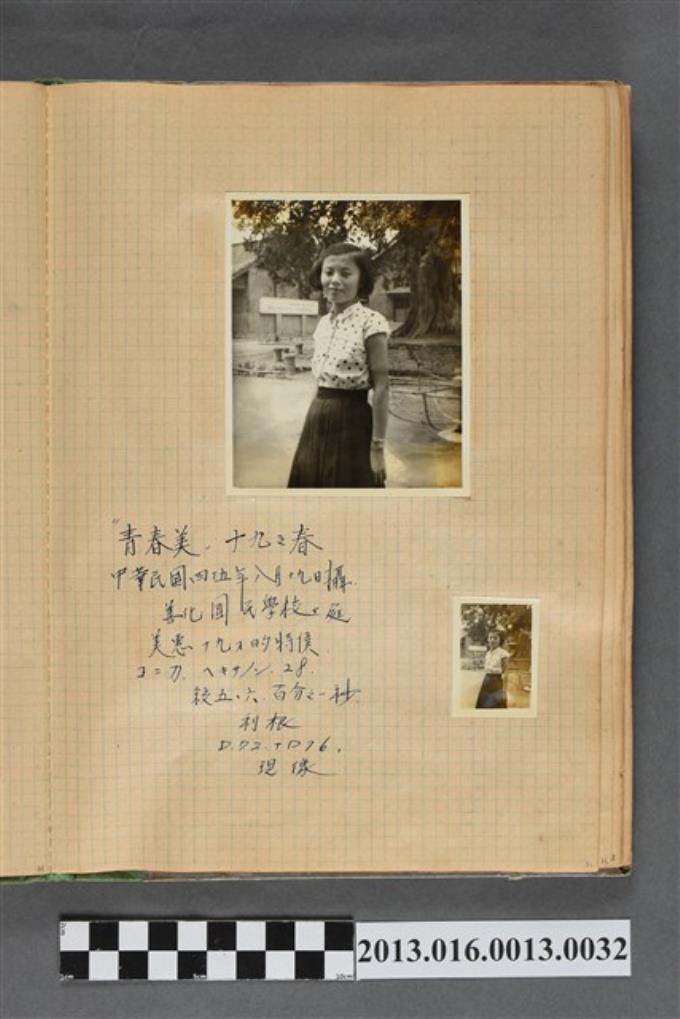 "青春美、十九之春
中華民國四五年八月十九日攝.
善化國民學校之庭
美惠十九才的時侯.
コニカ. ヘキサノン. 28.
絞五、六. 百分之一秒.
利根
D.72.+D76.
現像
0cm
5cm
10cm
2013.016.0013.0032